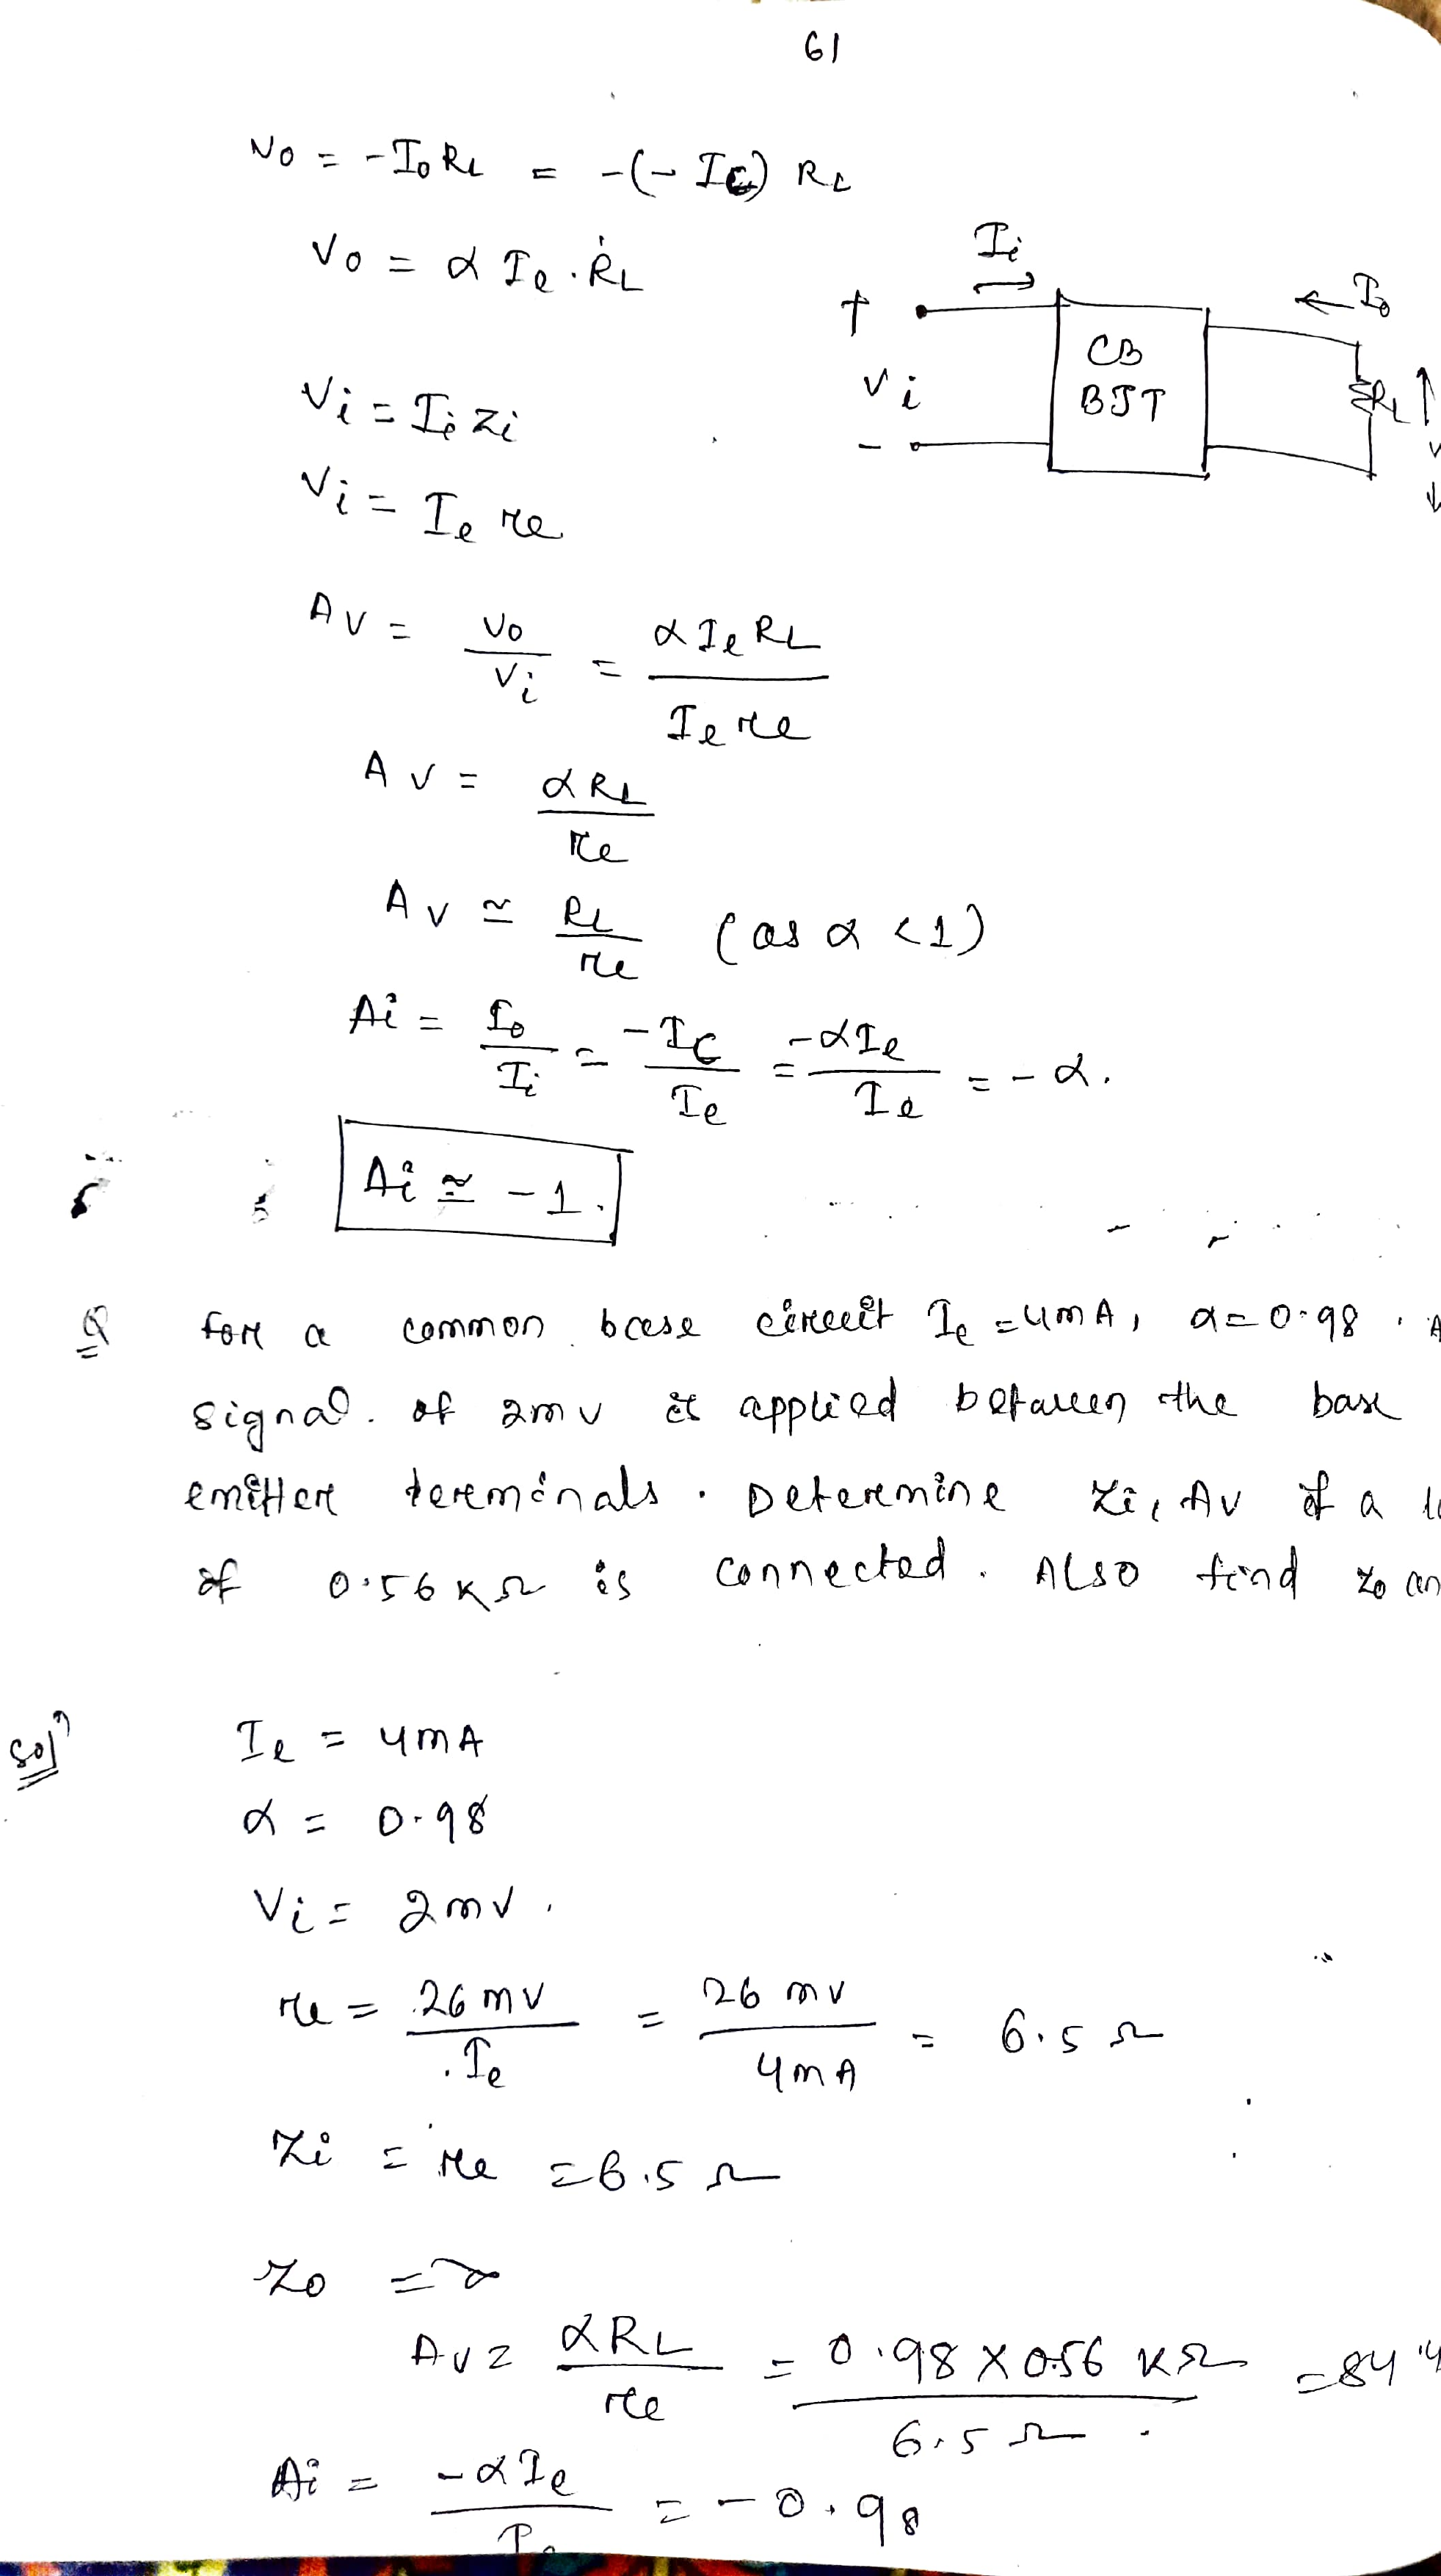 61
Vo = -Io RL = -(-Ic) RL
Vo = α Ie . RL
Ii
Io
+
Vi
-
CB
BJT
RL
Vi = Ii Zi
Vi = Ie re
Av = Vo / Vi = α Ie RL / Ie re
Av = α RL / re
Av ≅ RL / re (as α < 1)
Ai = Io / Ii = -Ic / Ie = -α Ie / Ie = -α.
Ai ≅ -1.
Q for a common base circuit Ie = 4mA, α = 0.98 . A
signal. of 2mv is applied between the base
emitter terminals . Determine Zi, Av if a
of 0.56 KΩ is connected . Also find Zo an
Solⁿ
Ie = 4mA
α = 0.98
Vi = 2mv.
re = 26mv / Ie = 26 mv / 4mA = 6.5 Ω
Zi = re = 6.5 Ω
Zo = ∞
Av = α RL / re = 0.98 × 0.56 KΩ / 6.5 Ω = 84.4
Ai = -α Ie / Ie = -0.98